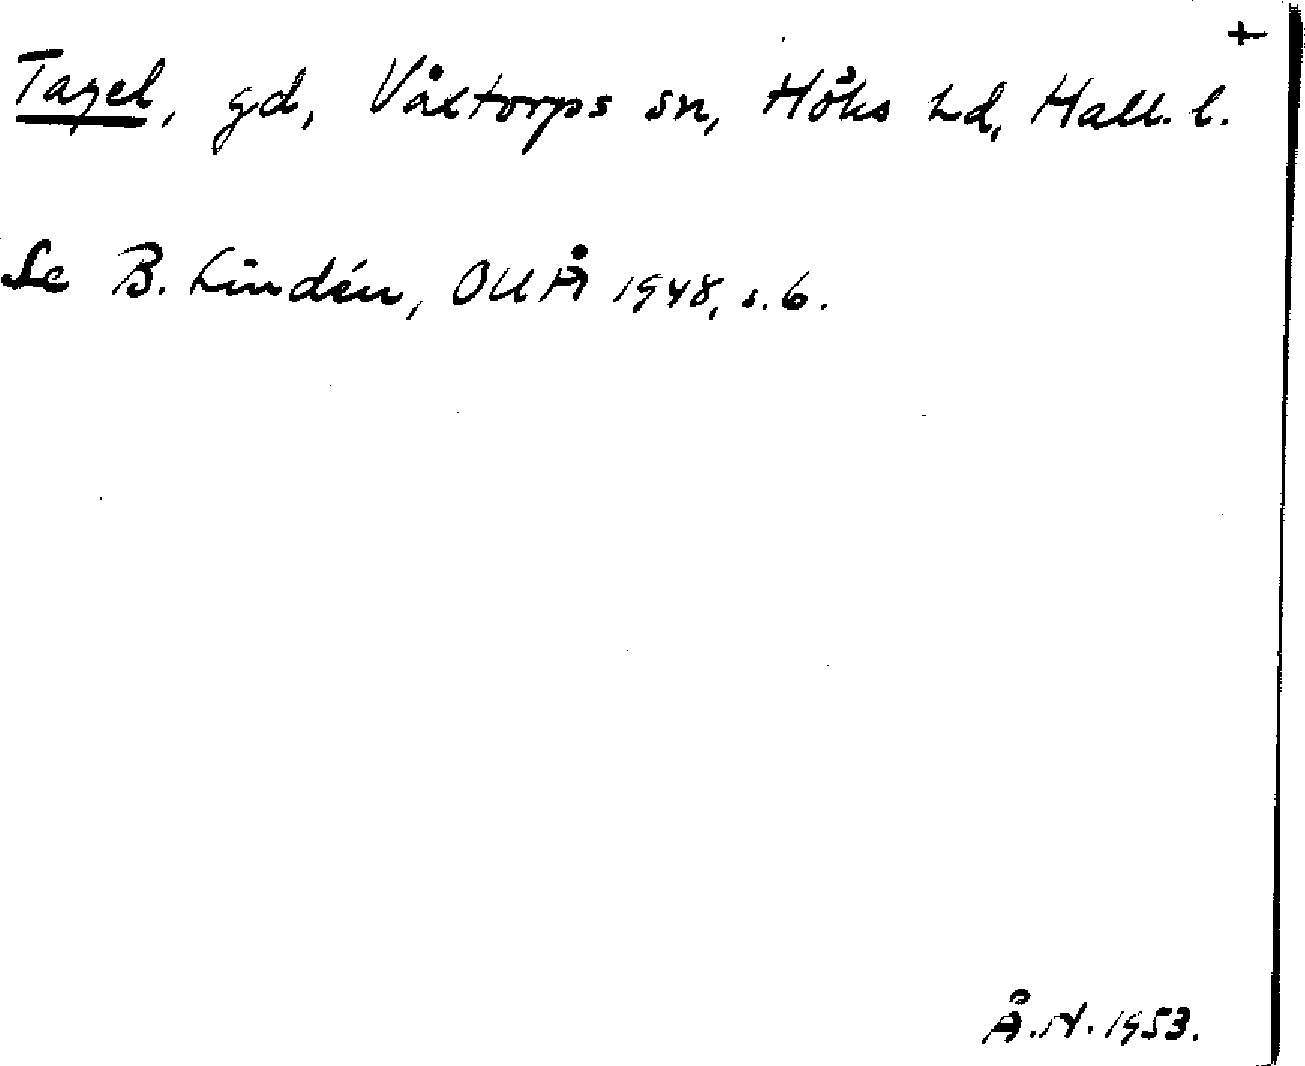 +
Tagel, gd, Våxtorps sn, Höks hd, Hall. l.
Se B. Lindén, OUÅ 1948, s. 6.
Å. N. 1953.